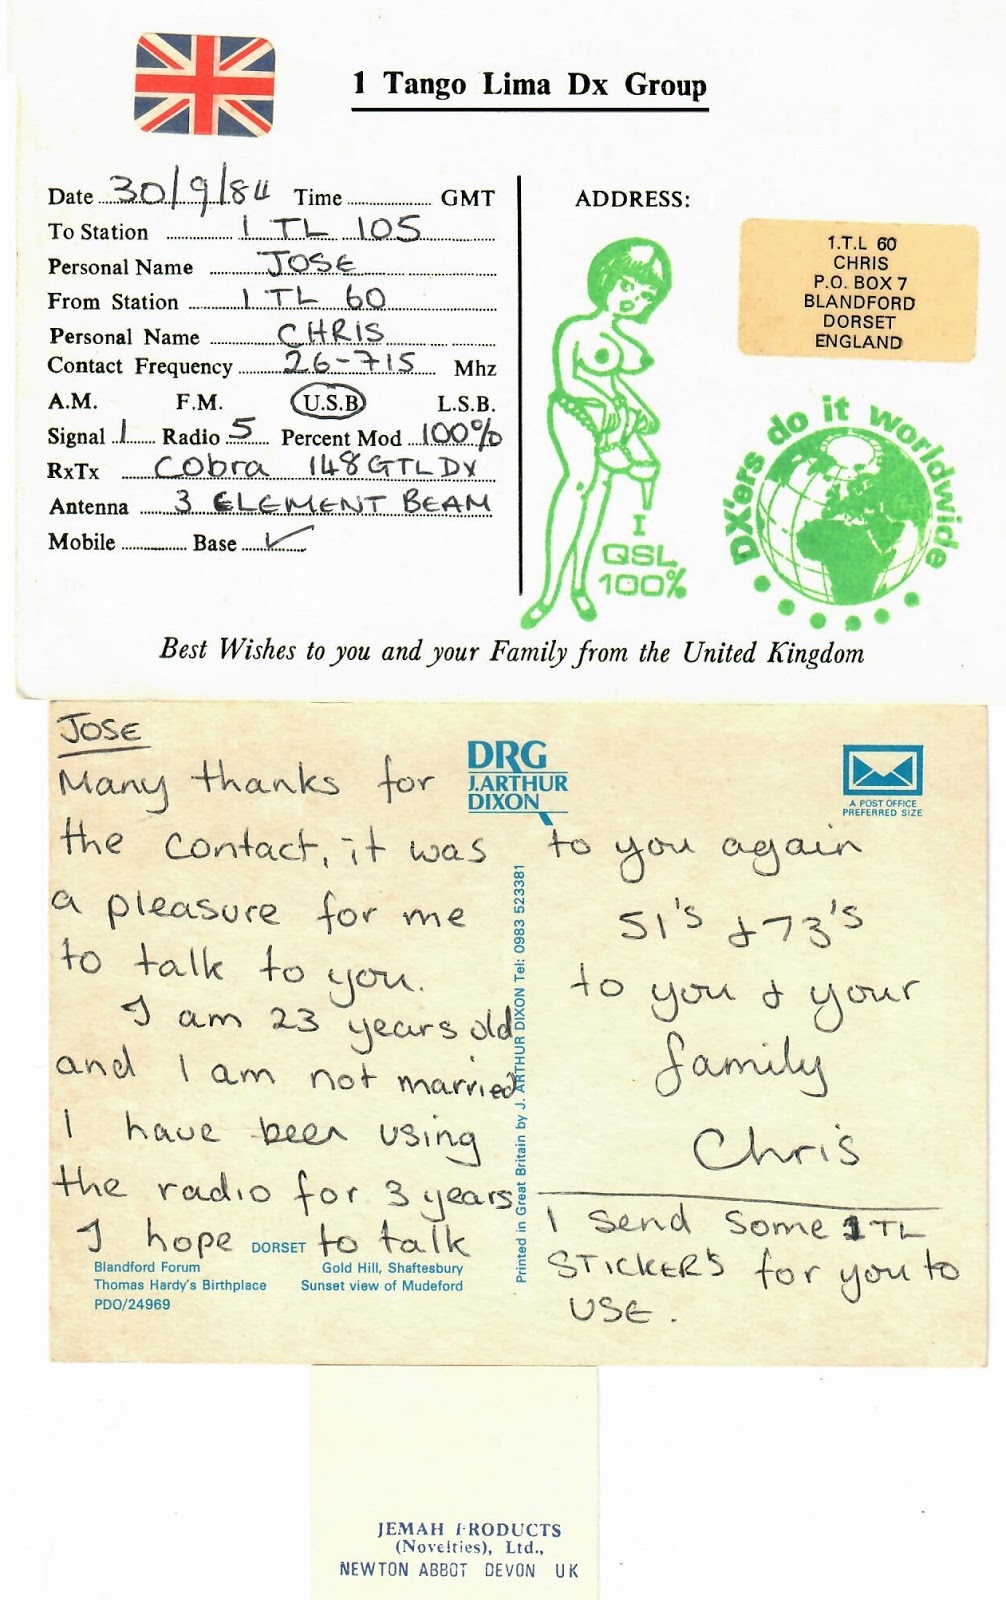 1 Tango Lima Dx Group
Date 30/9/84 Time GMT
To Station 1 TL 105
Personal Name JOSE
From Station 1 TL 60
Personal Name CHRIS
Contact Frequency 26-715 Mhz
A.M. F.M. U.S.B L.S.B.
Signal 1 Radio 5 Percent Mod 100%
RxTx Cobra 148GTLDX
Antenna 3 ELEMENT BEAM
Mobile Base ✓
ADDRESS:
1.T.L 60
CHRIS
P.O. BOX 7
BLANDFORD
DORSET
ENGLAND
I
QSL
100%
DX'ers do it worldwide
Best Wishes to you and your Family from the United Kingdom
JOSE
Many thanks for
the contact, it was
a pleasure for me
to talk to you.
I am 23 years old
and I am not married
I have been using
the radio for 3 years
I hope to talk
DORSET
Blandford Forum Gold Hill, Shaftesbury
Thomas Hardy's Birthplace Sunset view of Mudeford
PDO/24969
DRG
J.ARTHUR
DIXON
Printed in Great Britain by J. ARTHUR DIXON Tel: 0983 523381
A POST OFFICE
PREFERRED SIZE
to you again
51's & 73's
to you & your
family
Chris
I send some 1TL
STICKERS for you to
USE.
JEMAH PRODUCTS
(Novelties), Ltd.,
NEWTON ABBOT DEVON UK